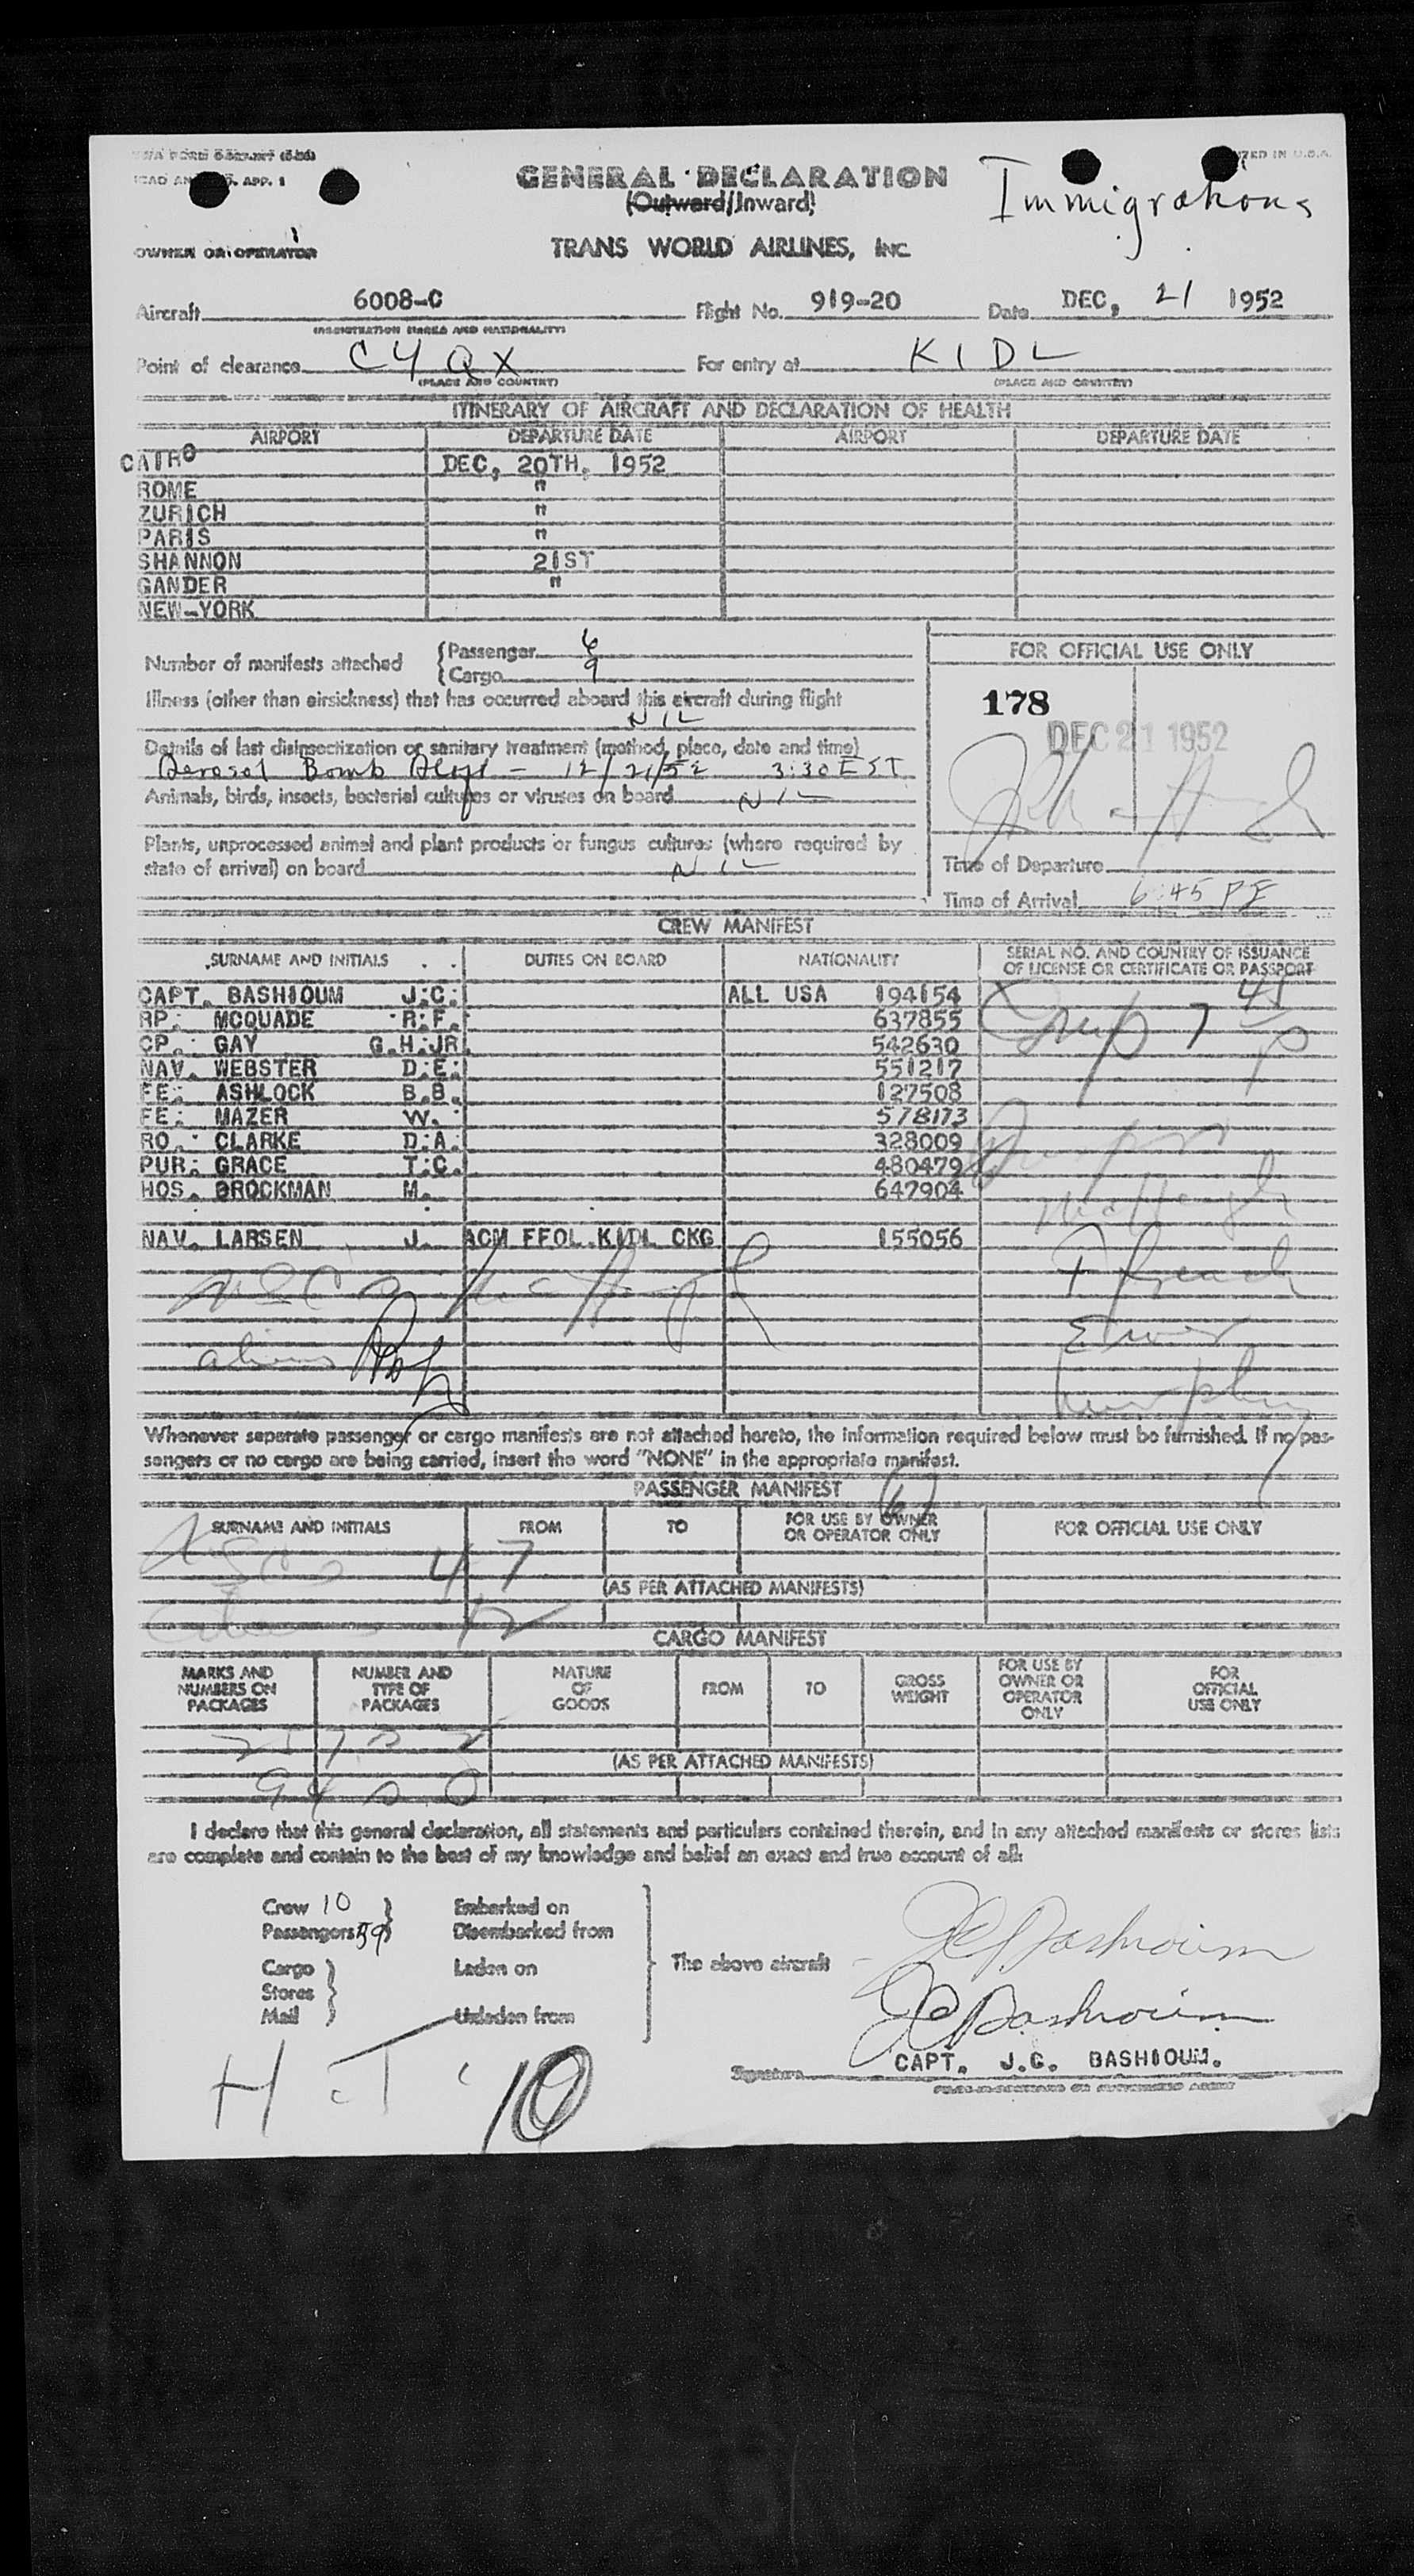 ICAO AN 9, APP. 1
GENERAL DECLARATION
(Outward/Inward)
Immigrations
OWNER OR OPERATOR
TRANS WORLD AIRLINES, INC
Aircraft 6008-C Flight No. 919-20 Date DEC, 21 1952
(REGISTRATION MARKS AND NATIONALITY)
Point of clearance CYQX For entry at KIDL
(PLACE AND COUNTRY) (PLACE AND COUNTRY)
ITINERARY OF AIRCRAFT AND DECLARATION OF HEALTH
AIRPORT DEPARTURE DATE AIRPORT DEPARTURE DATE
CAIRO DEC, 20TH, 1952
ROME "
ZURICH "
PARIS "
SHANNON 21ST
GANDER "
NEW-YORK
Number of manifests attached {Passenger 6
{Cargo 9
FOR OFFICIAL USE ONLY
178
DEC 21 1952
Illness (other than airsickness) that has occurred aboard this aircraft during flight
NIL
Details of last disinsectization or sanitary treatment (method, place, date and time)
Aerosol Bomb - 12/21/52 3:30 EST
Animals, birds, insects, bacterial cultures or viruses on board NIL
Plants, unprocessed animal and plant products or fungus cultures (where required by
state of arrival) on board NIL
Time of Departure
Time of Arrival 6:45 P
CREW MANIFEST
SURNAME AND INITIALS DUTIES ON BOARD NATIONALITY SERIAL NO. AND COUNTRY OF ISSUANCE
OF LICENSE OR CERTIFICATE OR PASSPORT
CAPT. BASHIOUM J.C. ALL USA 194154
RP. MCQUADE R.F. 637855
CP. GAY G.H.JR. 542630
NAV. WEBSTER D.E. 551217
FE. ASHLOCK B.B. 127508
FE. MAZER W. 578173
RO. CLARKE D.A. 328009
PUR. GRACE T.C. 480479
HOS. BROCKMAN M. 647904
NAV. LARSEN J. ACM FFOL KIDL CKG 155056
aliens
Murphy
Whenever separate passenger or cargo manifests are not attached hereto, the information required below must be furnished. If no pas-
sengers or no cargo are being carried, insert the word "NONE" in the appropriate manifest.
PASSENGER MANIFEST (6)
SURNAME AND INITIALS FROM TO FOR USE BY OWNER
OR OPERATOR ONLY FOR OFFICIAL USE ONLY
47
(AS PER ATTACHED MANIFESTS)
12
CARGO MANIFEST
MARKS AND
NUMBERS ON
PACKAGES NUMBER AND
TYPE OF
PACKAGES NATURE
OF
GOODS FROM TO GROSS
WEIGHT FOR USE BY
OWNER OR
OPERATOR
ONLY FOR
OFFICIAL
USE ONLY
(AS PER ATTACHED MANIFESTS)
I declare that this general declaration, all statements and particulars contained therein, and in any attached manifests or stores lists
are complete and contain to the best of my knowledge and belief an exact and true account of all:
Crew 10 } Embarked on
Passengers 59 } Disembarked from
Cargo } Laden on
Stores }
Mail } Unladen from
The above aircraft
JC Bashioum
JC Bashioum
CAPT. J.C. BASHIOUM.
Signature
10